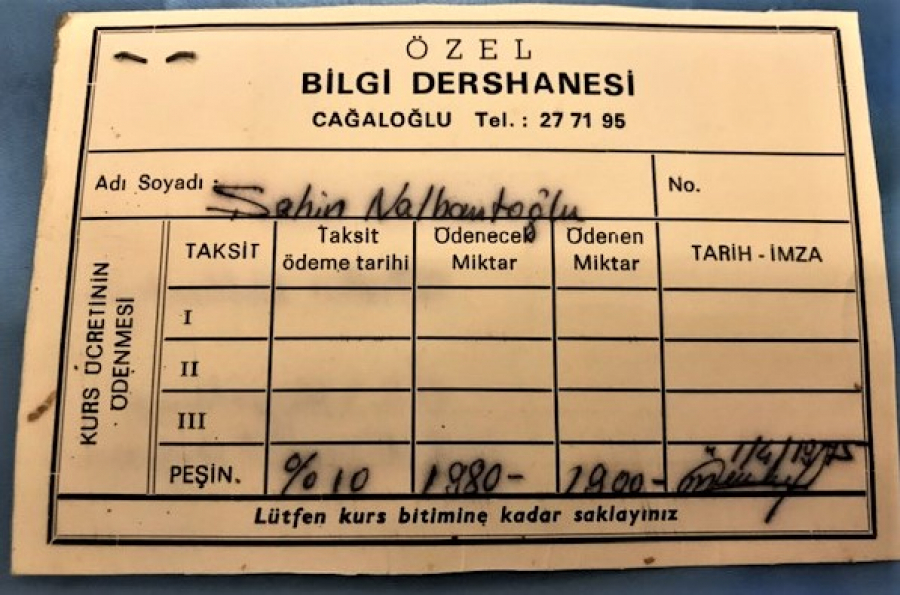 ÖZEL
BİLGİ DERSHANESİ
CAĞALOĞLU Tel.: 27 71 95
Adı Soyadı : Şahin Nalbantoğlu No.
KURS ÜCRETİNİN ÖDENMESİ
TAKSİT Taksit ödeme tarihi Ödenecek Miktar Ödenen Miktar TARİH - İMZA
I
II
III
PEŞİN. % 10 1980- 1900- 1/4/1975
Lütfen kurs bitimine kadar saklayınız